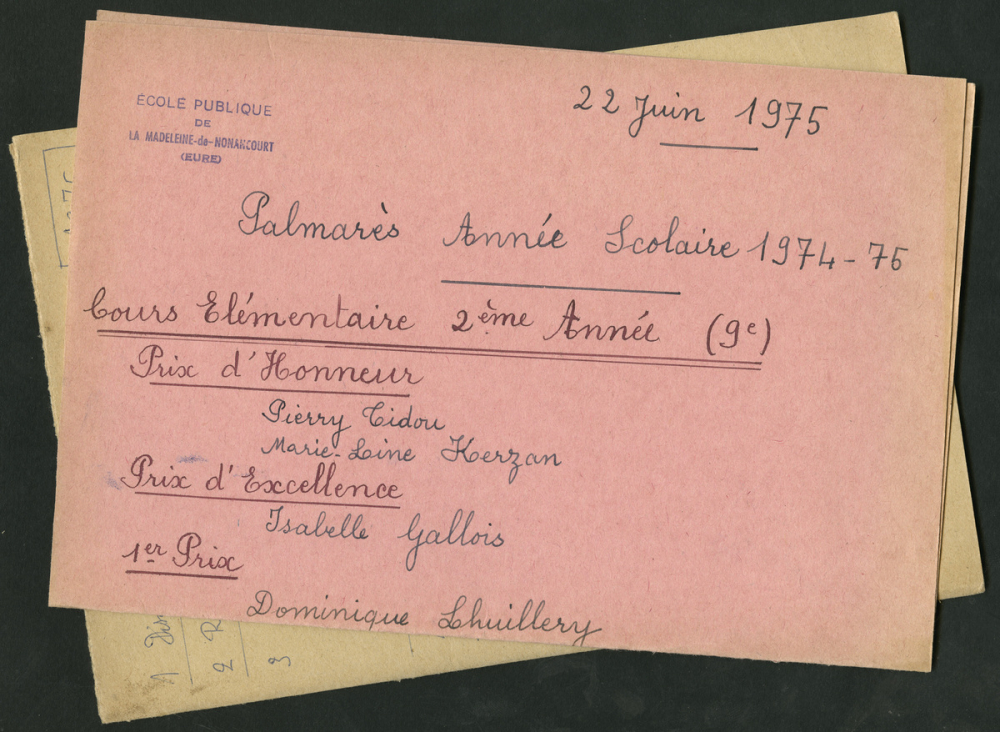 ÉCOLE PUBLIQUE
DE
LA MADELEINE-de-NONANCOURT
(EURE)
22 Juin 1975
Palmarès Année Scolaire 1974-75
Cours Elémentaire 2ème Année (9e)
Prix d'Honneur
Pierry Tidou
Marie-Line Kerzan
Prix d'Excellence
Isabelle Gallois
1er Prix
Dominique Lhuillery
1
2 R
3